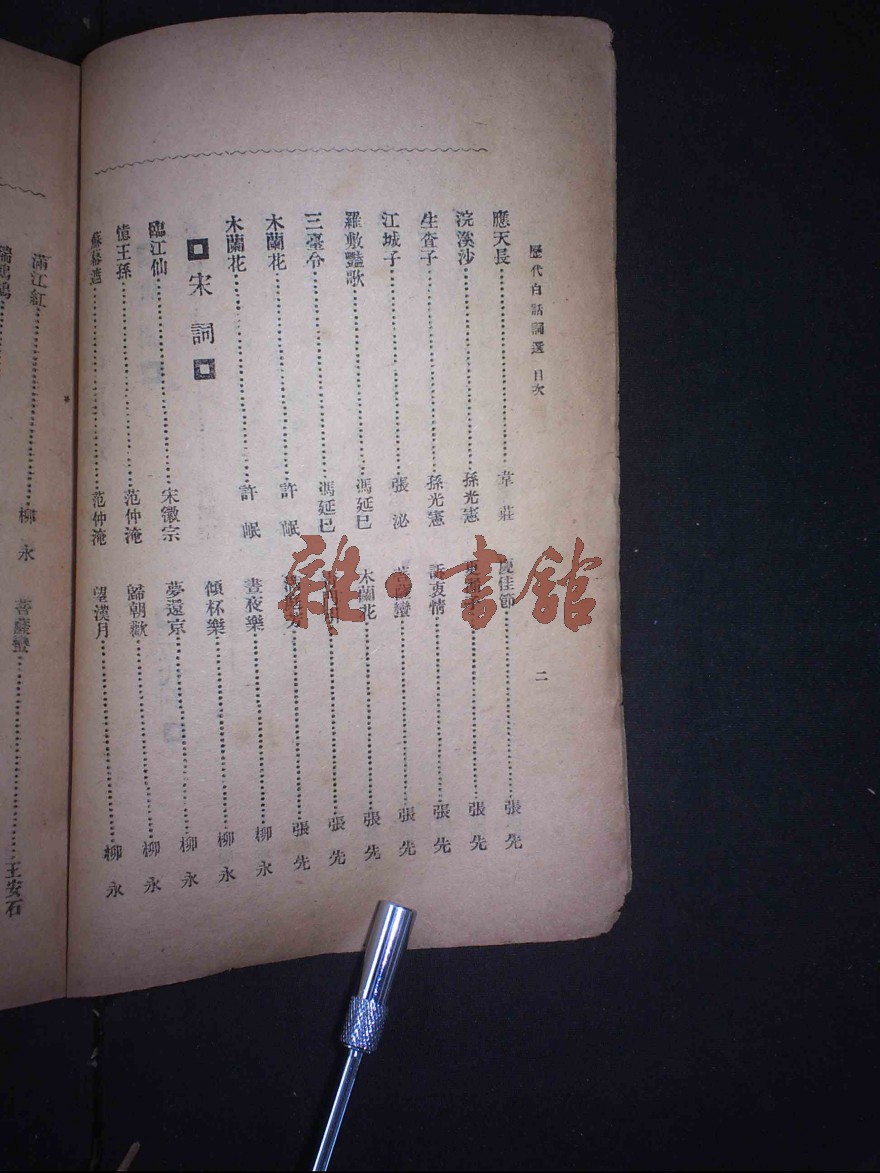 歷代白話詞選 目次
二
應天長 韋莊
浣溪沙 孫光憲
生查子 孫光憲
江城子 張泌
羅敷豔歌 馮延巳
三臺令 馮延巳
木蘭花 許岷
木蘭花 許岷
宋詞
臨江仙 宋徽宗
憶王孫 范仲淹
蘇幕遮 范仲淹
慶佳節 張先
張先
訴衷情 張先
菩薩蠻 張先
木蘭花 張先
張先
張先
晝夜樂 柳永
傾杯樂 柳永
夢還京 柳永
歸朝歡 柳永
望漢月 柳永
滿江紅 柳永
菩薩蠻 王安石
瑞鷓鴣
雜·書館